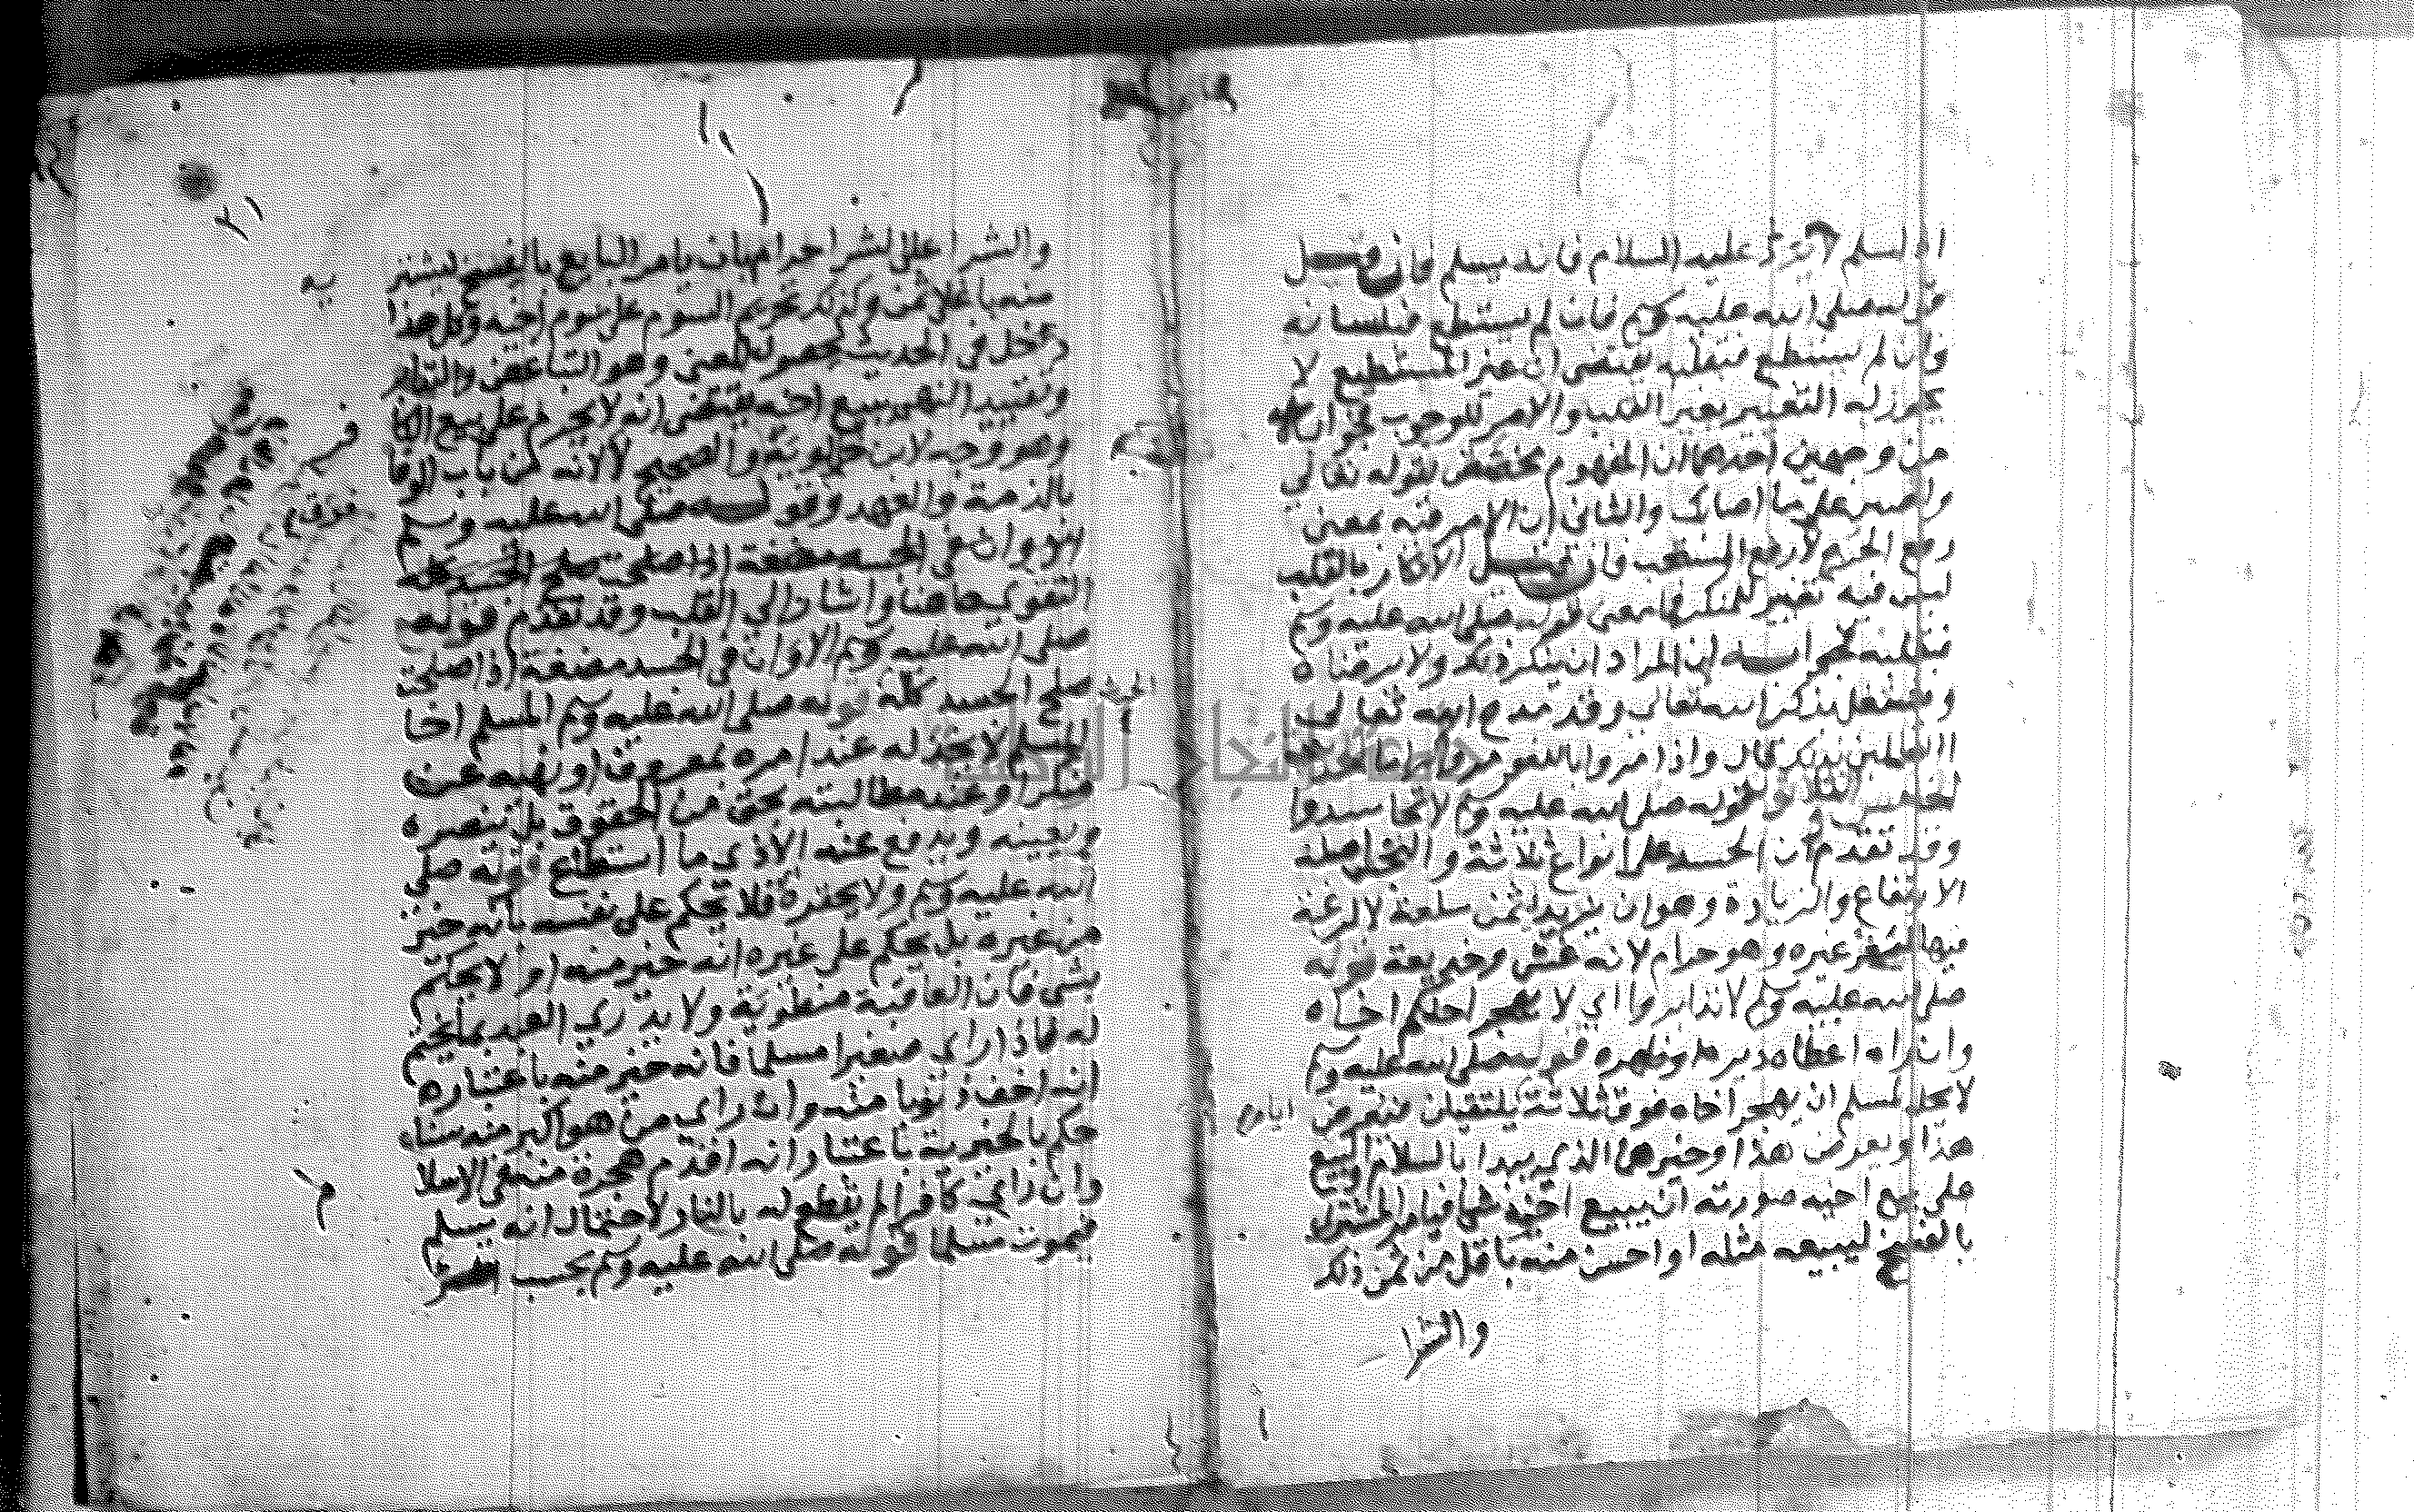 عليه السلام فانه يسلم فان قيل
قوله صلى الله عليه وسلم فان لم يستطع فبلسانه
وان لم يستطع فبقلبه يقتضي ان غير المستطيع لا
يجوز له التغيير بغير القلب والامر للوجوب فجوابه
من وجهين احدهما ان المفهوم مخصص بقوله تعالى
واصبر على ما اصابك والثاني ان الامر فيه بمعنى
رفع الحرج لا رفع المستحب فان قيل الانكار بالقلب
ليس فيه تغيير للمنكر فما معنى قوله صلى الله عليه وسلم
فبقلبه فجوابه ان المراد ان ينكر ذلك ولا يرضاه
ويشتغل بذكر الله تعالى وقد مدح الله تعالى
العاملين بذلك قال واذا مروا باللغو مروا كراما
قوله صلى الله عليه وسلم لا تحاسدوا
وقد تقدم ان الحسد على انواع ثلاثة والنجش اصله
الارتفاع والزيادة وهو ان يزيد في ثمن سلعة لا لرغبة
فيها ليغر غيره وهو حرام لانه غش وخديعة قوله
صلى الله عليه وسلم لا تدابروا اي لا يهجر احدكم اخاه
وان راه اعطاه دبره او ظهره قوله صلى الله عليه وسلم
لا يحل لمسلم ان يهجر اخاه فوق ثلاثة ايام يلتقيان فيعرض
هذا ويعرض هذا وخيرهما الذي يبدا بالسلام البيع
على بيع اخيه صورته ان يبيع اخيه شيا فيامر المشتري
بالفسخ ليبيعه مثله او احسن منه باقل من ثمن ذلك
والشرا
والشرا على الشرا حرام بان يامر البايع بالفسخ ليشتريه
منه باغلا ثمن وكذلك تحريم السوم على سوم اخيه وكل هذا
دخل في الحديث لحصول المعنى وهو التباغض والتدابر
وتقييد النهي ببيع اخيه يقتضي انه لا يحرم على بيع الكافر
وهو وجه لابن خالويه والصحيح لا لانه من باب الوفا
بالذمة والعهد وقوله صلى الله عليه وسلم
التقوى هاهنا واشار الى القلب وقد تقدم قوله
صلى الله عليه وسلم الا وان في الجسد مضغة اذا صلحت
صلح الجسد كله قوله صلى الله عليه وسلم المسلم اخا
المسلم لا يخذله عند امره بمعروف او نهيه عن
منكر او عند مطالبته بحق من الحقوق بل ينصره
ويعينه ويدفع عنه الاذي ما استطاع قوله صلى
الله عليه وسلم ولا يحقره فلا يحكم على نفسه بانه خير
من غيره بل يحكم على غيره انه خير منه او لا يحكم
بشي فان العاقبة منطوية ولا يدري العبد بما يختم
له فاذا راي صغيرا مسلما فانه خير منه باعتباره
انه اخف ذنوبا منه وان راي من هو اكبر منه سنا
حكم بالخيرية باعتبار انه اقدم هجرة منه في الاسلام
وان راي كافرا لم يقطع له بالنار لاحتمال انه يسلم
فيموت مسلما قوله صلى الله عليه وسلم بحسب